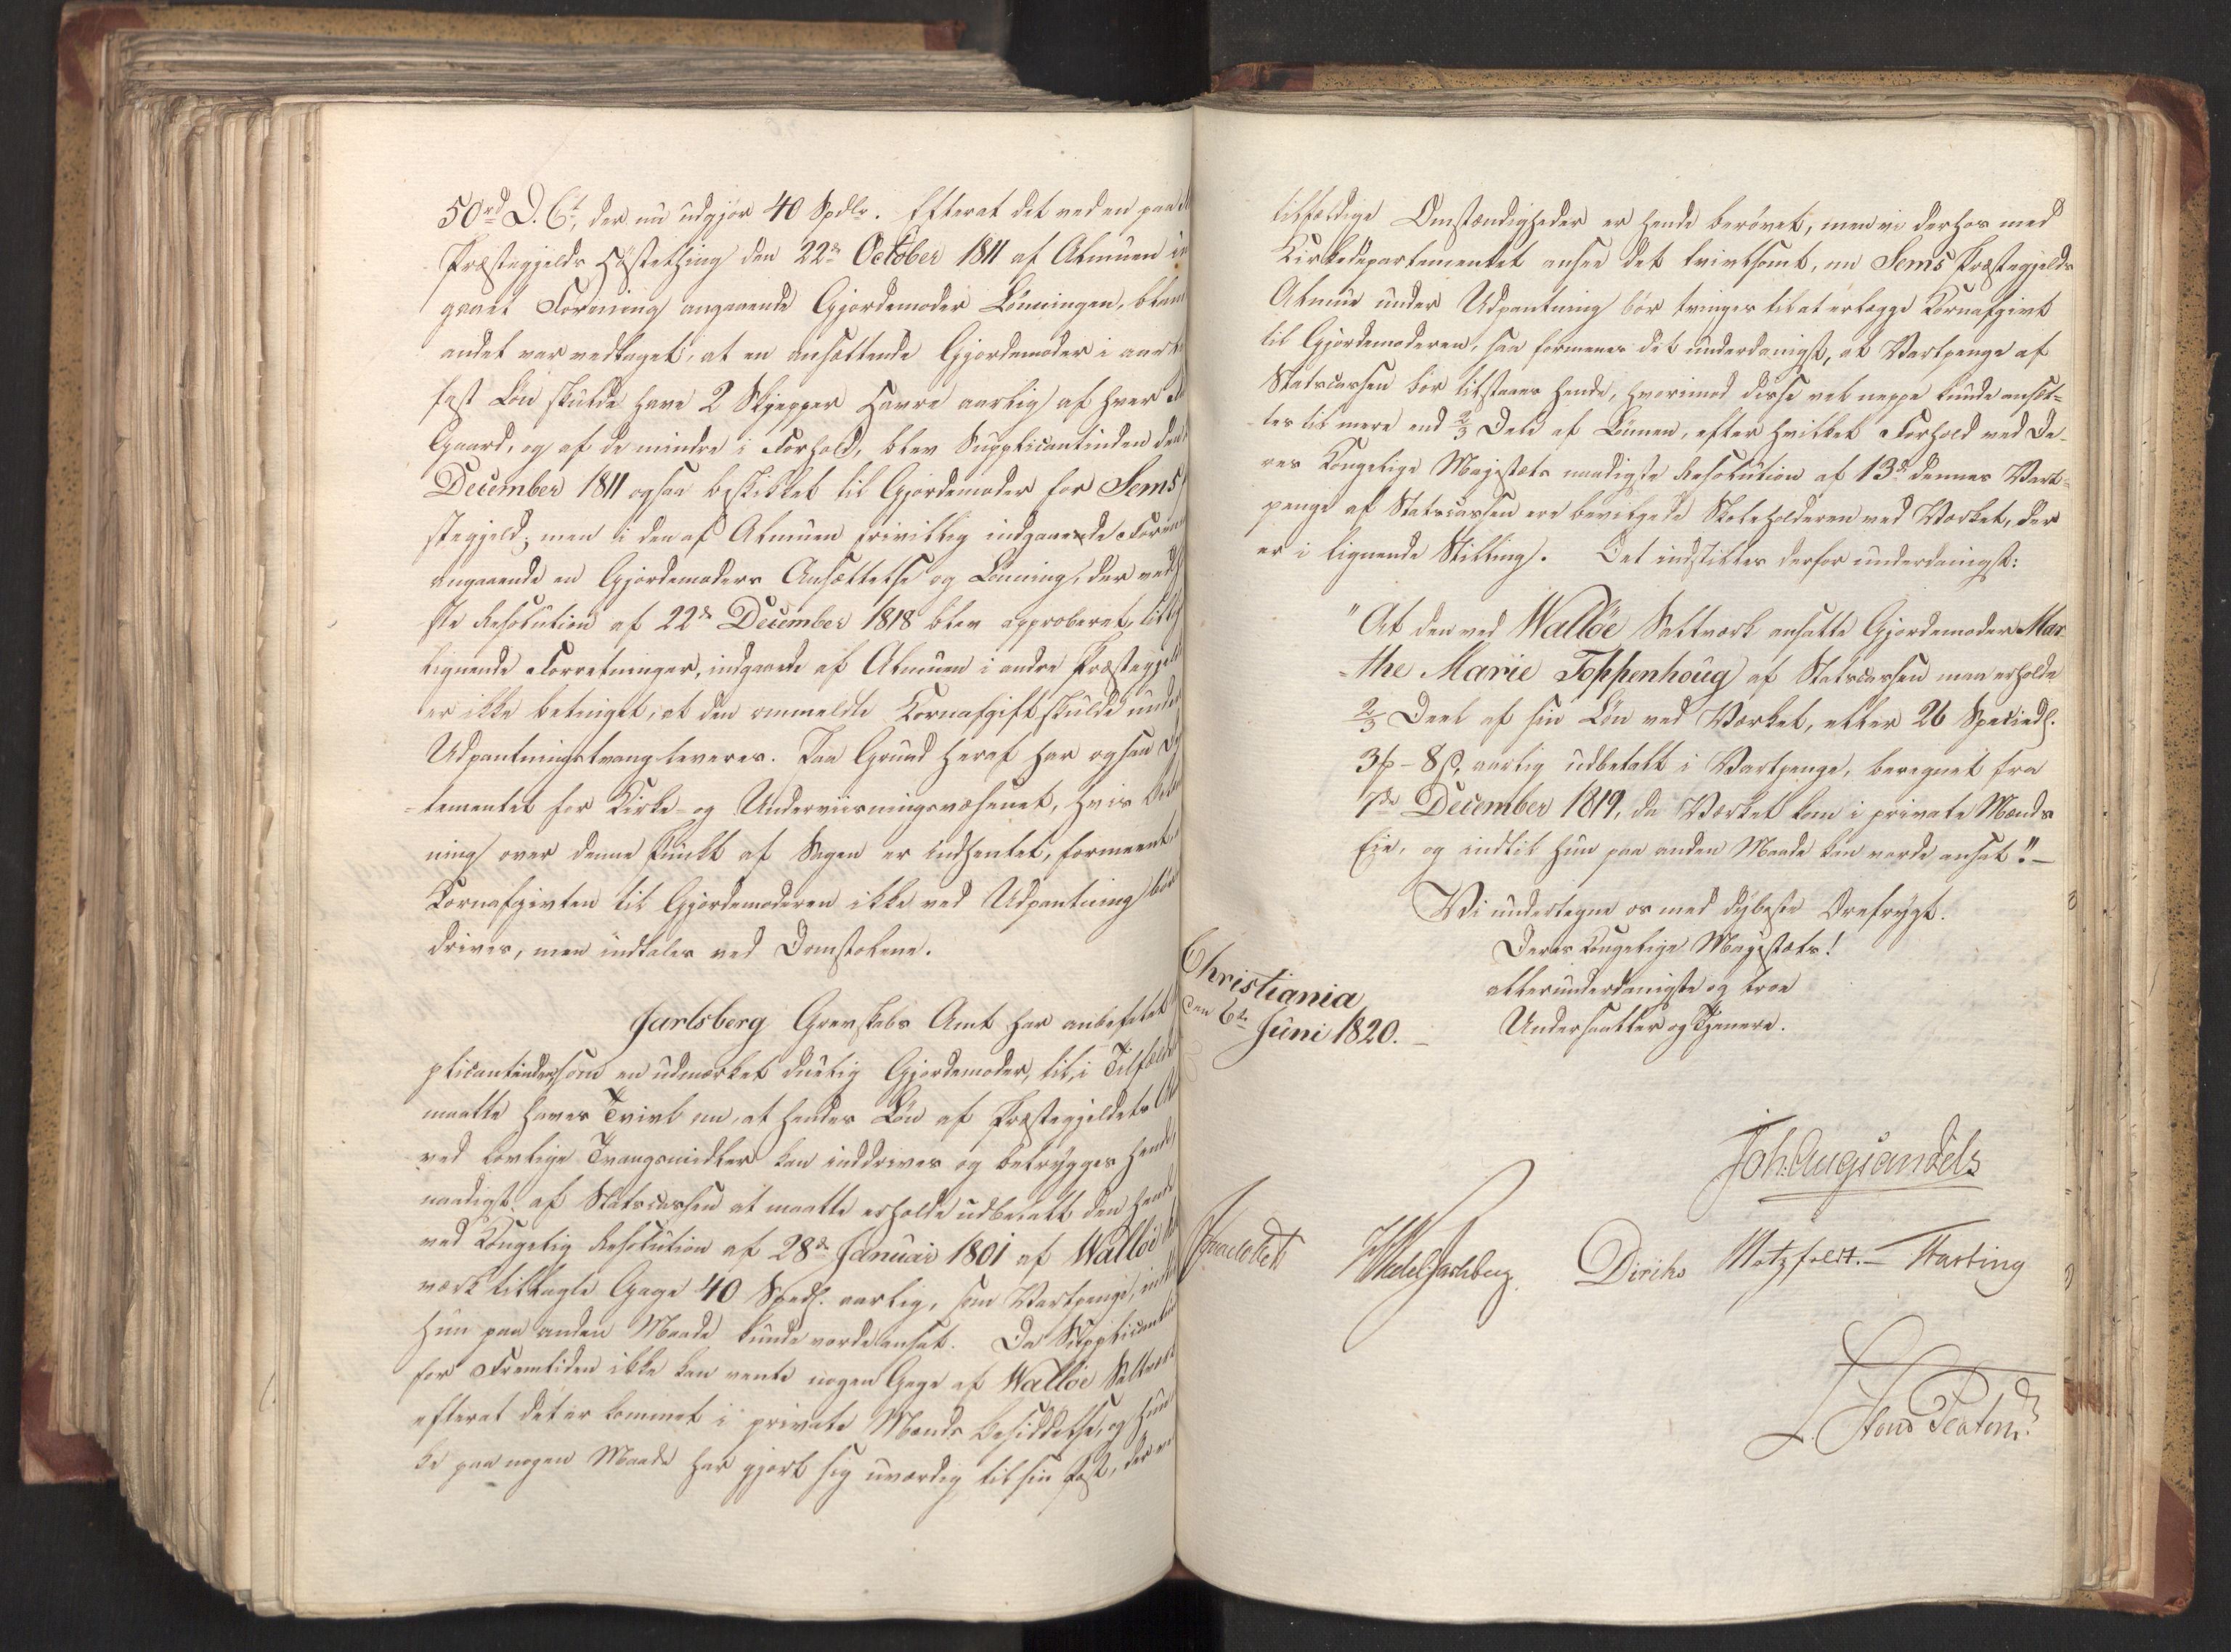 50rd D. Ct, der nu udgjør 40 Spdlr. Efterat det ved en paa
Præstegjelds Høstething den 22de October 1811 af Almuen
gaaet Forening angaaende Gjordemoder Lønningen, blan
andet var vedtaget, at en ansættende Gjordemoder i aar
fast Løn skulde have 2 Skjepper Havre aarlig af hver
Gaard, og af de mindre i Forhold, blev Supplicantinden den
December 1811 ogsaa beskikket til Gjordemoder for Sems
stegjeld; men i den af Almuen frivillig indgaaende Foren
angaaende en Gjordemoders Ansættelse og Lønning, der ved
ste Resolution af 22de December 1818 blev approberet,
lignende Forretninger, indgaaede af Almuen i andre Præstegjeld
er ikke betinget, at den ommeldte Kornafgift skulde under
Udpantningstvang leveres. Paa Grund heraf har ogsaa
-tementet for Kirke- og Underviisningsvæsenet, hvis
ning over denne Punkt af Sagen er indhentet, formeent
Kornafgivten til Gjordemoderen ikke ved Udpantning bør
drives, men indtales ved Domstolene.
Jarlsberg Grevskabs Amt har anbefalet
plicantinden som en udmærket duelig Gjordemoder, til, i Tilfælde
maatte haves Tvivl om, at hendes Løn af Præstegjeldets
ved lovlige Tvangsmidler kan inddrives og betrygges hende,
naadigst af Statscassen at maatte erholde udbetalt den hende
ved Kongelig Resolution af 28de Januar 1801 af Walløe
værk tillagte Gage 40 Spedl. aarlig, som Vartpenge, indtil
hun paa anden Maade kunde vorde ansat. Da Supplicantin
for Fremtiden ikke kan vente nogen Gage af Walløe Saltværk
efterat det er kommet i private Mænds Besiddelse, og hun
ke paa nogen Maade har gjort sig uværdig til sin Post, der
tilfældige Omstændigheder er hende berøvet, men vi derhos med
Kirkedepartementet ansee det tvivlsomt, om Sems Præstegjelds
Almue under Udpantning bør tvinges til at erlægge Kornafgivt
til Gjordemoderen, saa formenes det underdanigst, at Vartpenge af
Statscassen bør tilstaaes hende, hvorimod disse vel neppe kunde ansæt=
tes til mere end 2/3 Dele af Lønnen, efter hvilket Forhold ved De-
res Kongelige Majestæts naadigste Resolution af 13de dennes Vart=
penge af Statscassen ere bevilgede Skoleholderen ved Værket, der
er i lignende Stilling. Det indstilles derfor underdanigst:
"At den ved Walløe Saltværk ansatte Gjordemoder Mar
=the Marie Toppenhoug af Statscassen maa erholde
2/3 Deel af sin Løn ved Værket, eller 26 Speciedl.
3 ß - 8 ß, aarlig udbetalt i Vartpenge, beregnet fra
7de December 1819, da Værket kom i private Mænds
Eie, og indtil hun paa anden Maade kan vorde ansat". -
Vi undertegne os med dybeste Ærefrygt.
Deres Kongelige Majestæts!
allerunderdanigste og troe
Undersaatter og Tjenere.
Christiania
den 6te Juni 1820. -
Joh. Aug Sandels
HWedel Jarlsberg. Diriks Motzfeldt. - Fasting